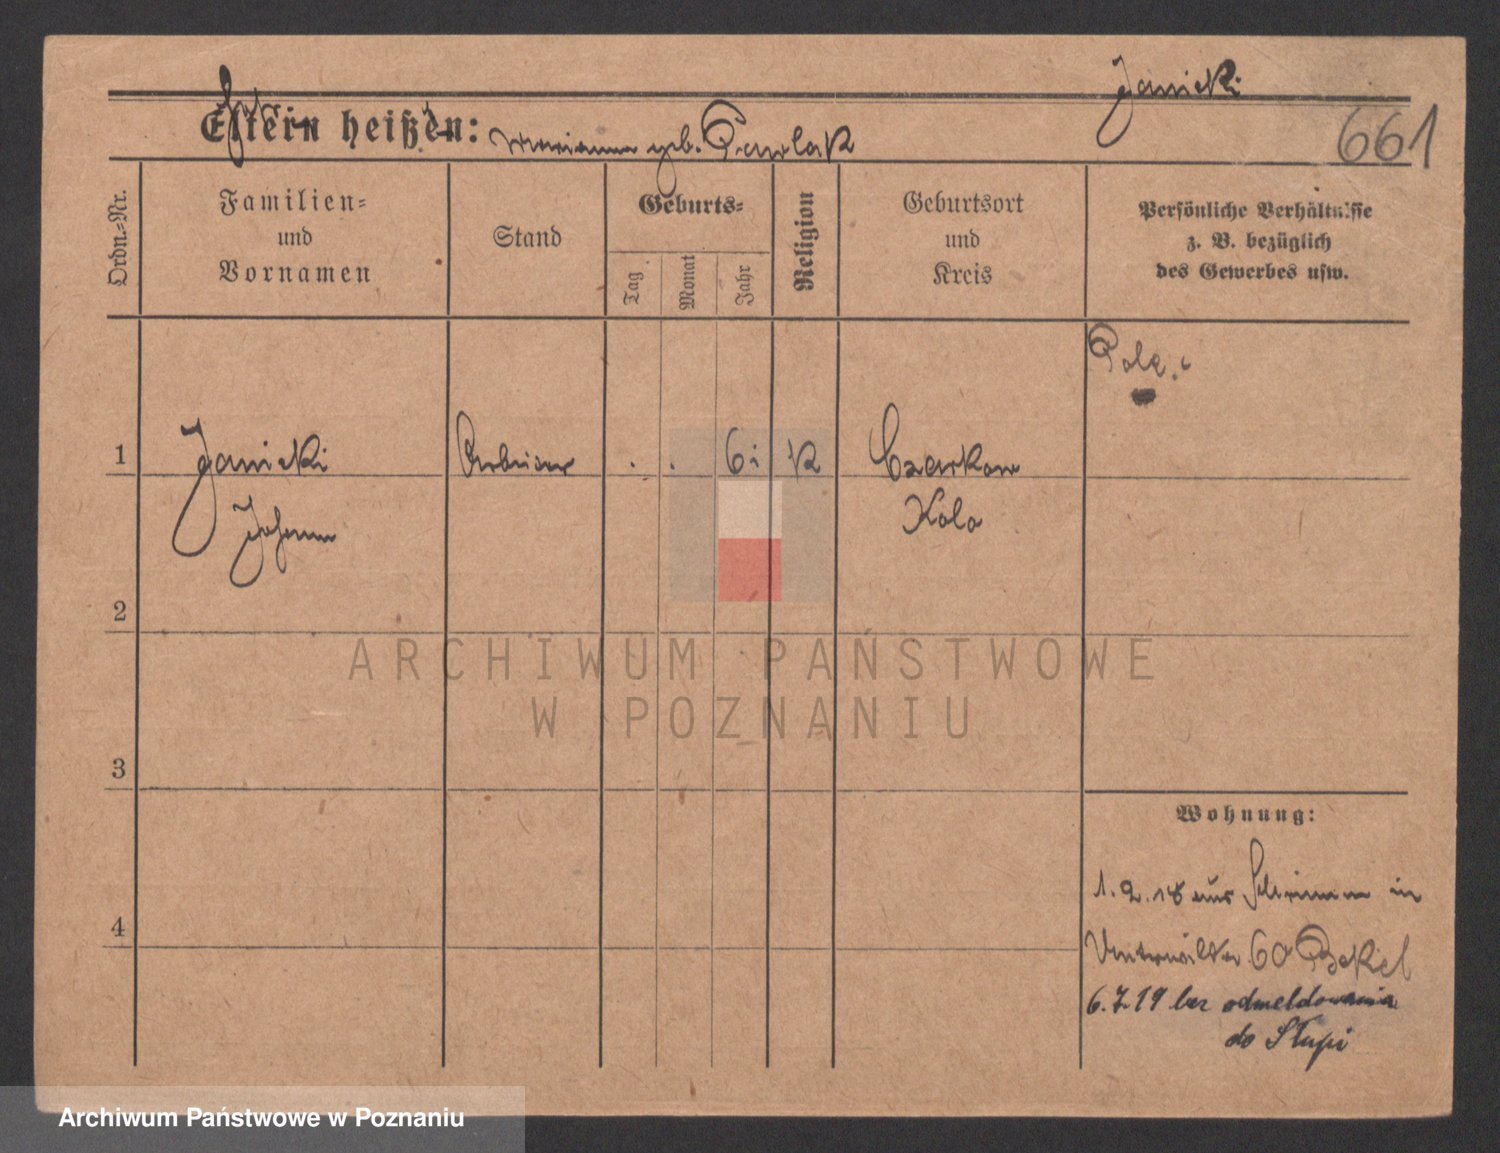 Janicki
661
Eltern heißen:
Marianna geb. Pawlak
Ordn.-Nr.
Familien-
und
Vornamen
Stand
Geburts-
Tag
Monat
Jahr
Religion
Geburtsort
und
Kreis
Persönliche Verhältnisse
z. B. bezüglich
des Gewerbes usw.
Pole
1 Janicki . . K Czarkow
Johann Kolo
2
3
4
Wohnung:
1. 2. 18 aus Schrimm in
60
6.7.19 bez odmeldowania
do Słupi
ARCHIWUM PAŃSTWOWE
W POZNANIU
Archiwum Państwowe w Poznaniu